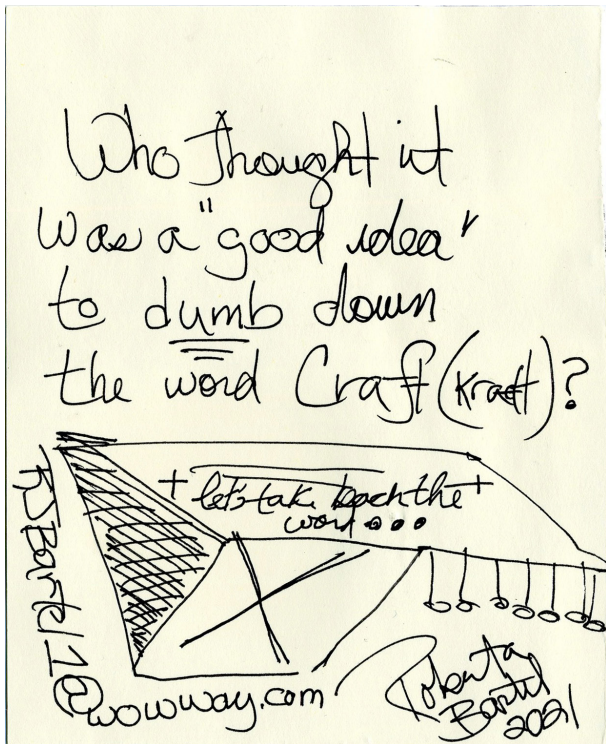 Who thought it
was a "good idea"
to dumb down
the word Craft (Kraft)?
+ let's take back the +
word...
RSBartel1@wowway.com
Roberta
Bartel
2021